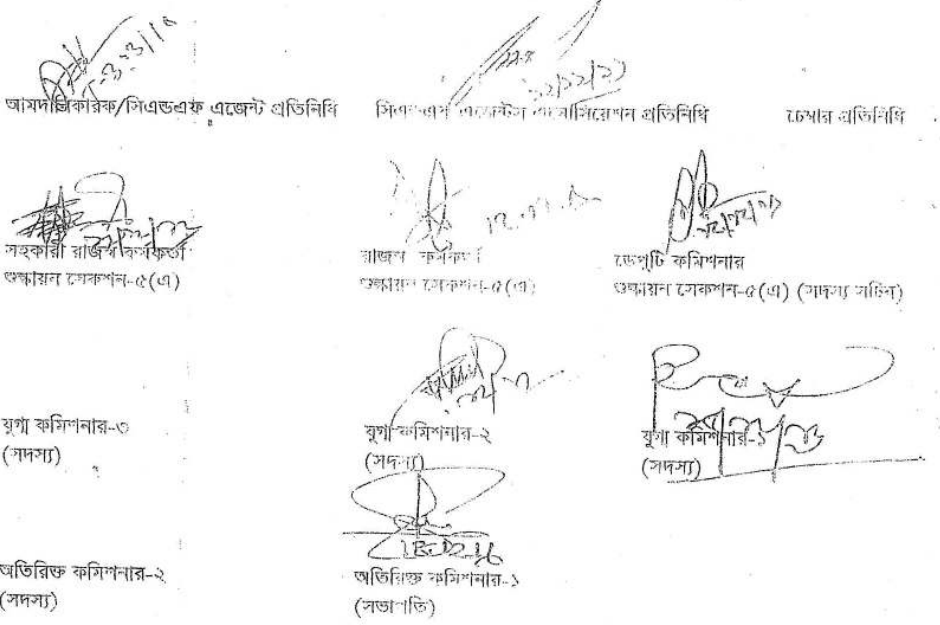 আমদানিকারক/সিএন্ডএফ এজেন্ট প্রতিনিধি
সিএন্ডএফ এজেন্টস এসোসিয়েশন প্রতিনিধি
চেম্বার প্রতিনিধি
সহকারী রাজস্ব কর্মকর্তা
শুল্কায়ন সেকশন-৫(এ)
রাজস্ব কর্মকর্তা
শুল্কায়ন সেকশন-৫(এ)
ডেপুটি কমিশনার
শুল্কায়ন সেকশন-৫(এ) (সদস্য সচিব)
যুগ্ম কমিশনার-৩
(সদস্য)
যুগ্ম কমিশনার-২
(সদস্য)
যুগ্ম কমিশনার-১
(সদস্য)
অতিরিক্ত কমিশনার-২
(সদস্য)
অতিরিক্ত কমিশনার-১
(সভাপতি)